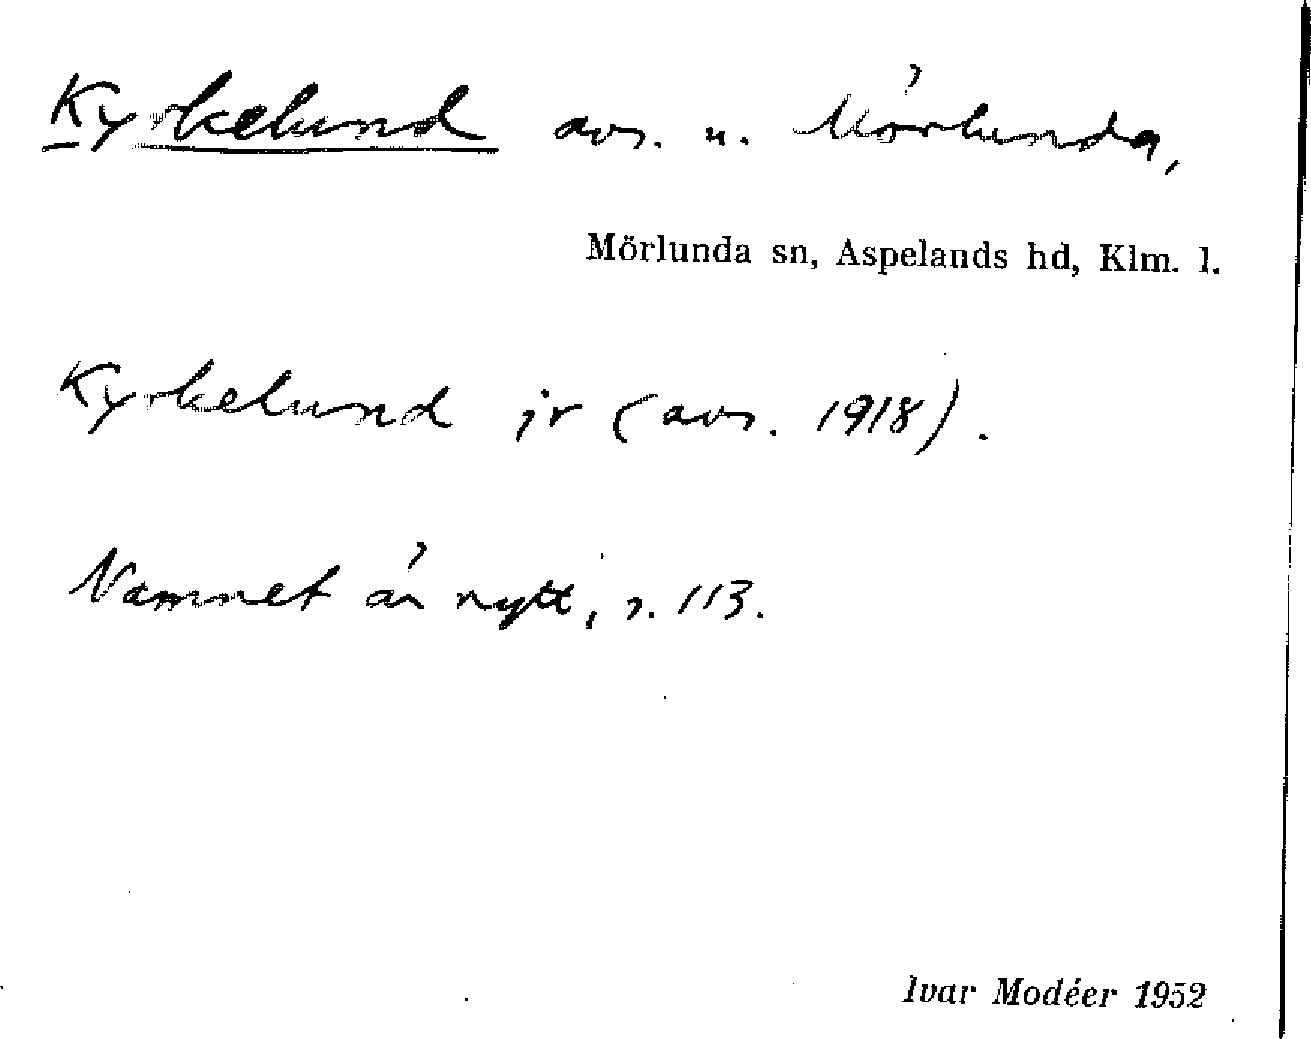 Kyrkelund avs. u. Mörlunda,
Mörlunda sn, Aspelands hd, Klm. l.
Kyrkelund jr (avs. 1918).
Namnet är nytt, s. 113.
Ivar Modéer 1952